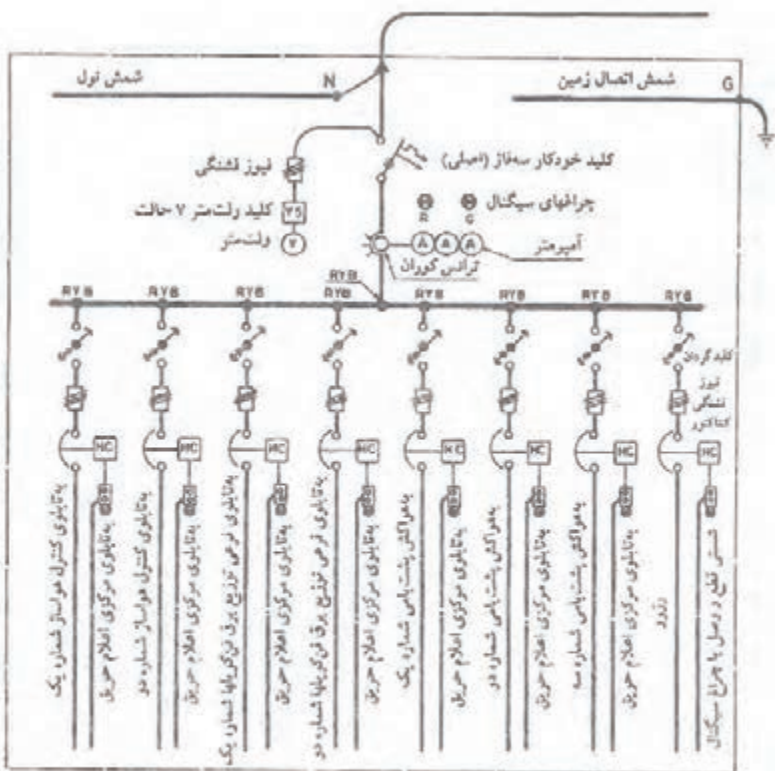 شمش نول
N
شمش اتصال زمین
G
کلید خودکار سه‌فاز (اصلی)
فیوز فشنگی
چراغهای سیگنال
R
G
کلید ولت‌متر ۷ حالت
VS
ولت‌متر
V
آمپرمتر
A A A
ترانس کوران
RYB
RYB RYB RYB RYB RYB RYB RYB RYB
کلید گردان
فیوز
فشنگی
کنتاکتور
MC MC MC MC MC MC MC MC
به‌تابلوی کنترل هواساز شماره یک
به‌تابلوی مرکزی اعلام حریق
به‌تابلوی کنترل هواساز شماره دو
به‌تابلوی مرکزی اعلام حریق
به‌تابلوی فرعی توزیع برق فن‌کویلها شماره یک
به‌تابلوی مرکزی اعلام حریق
به‌تابلوی فرعی توزیع برق فن‌کویلها شماره دو
به‌تابلوی مرکزی اعلام حریق
به‌هواکش پشت‌بامی شماره یک
به‌تابلوی مرکزی اعلام حریق
به‌هواکش پشت‌بامی شماره دو
به‌تابلوی مرکزی اعلام حریق
به‌هواکش پشت‌بامی شماره سه
به‌تابلوی مرکزی اعلام حریق
رزرو
شستی قطع و وصل با چراغ سیگنال